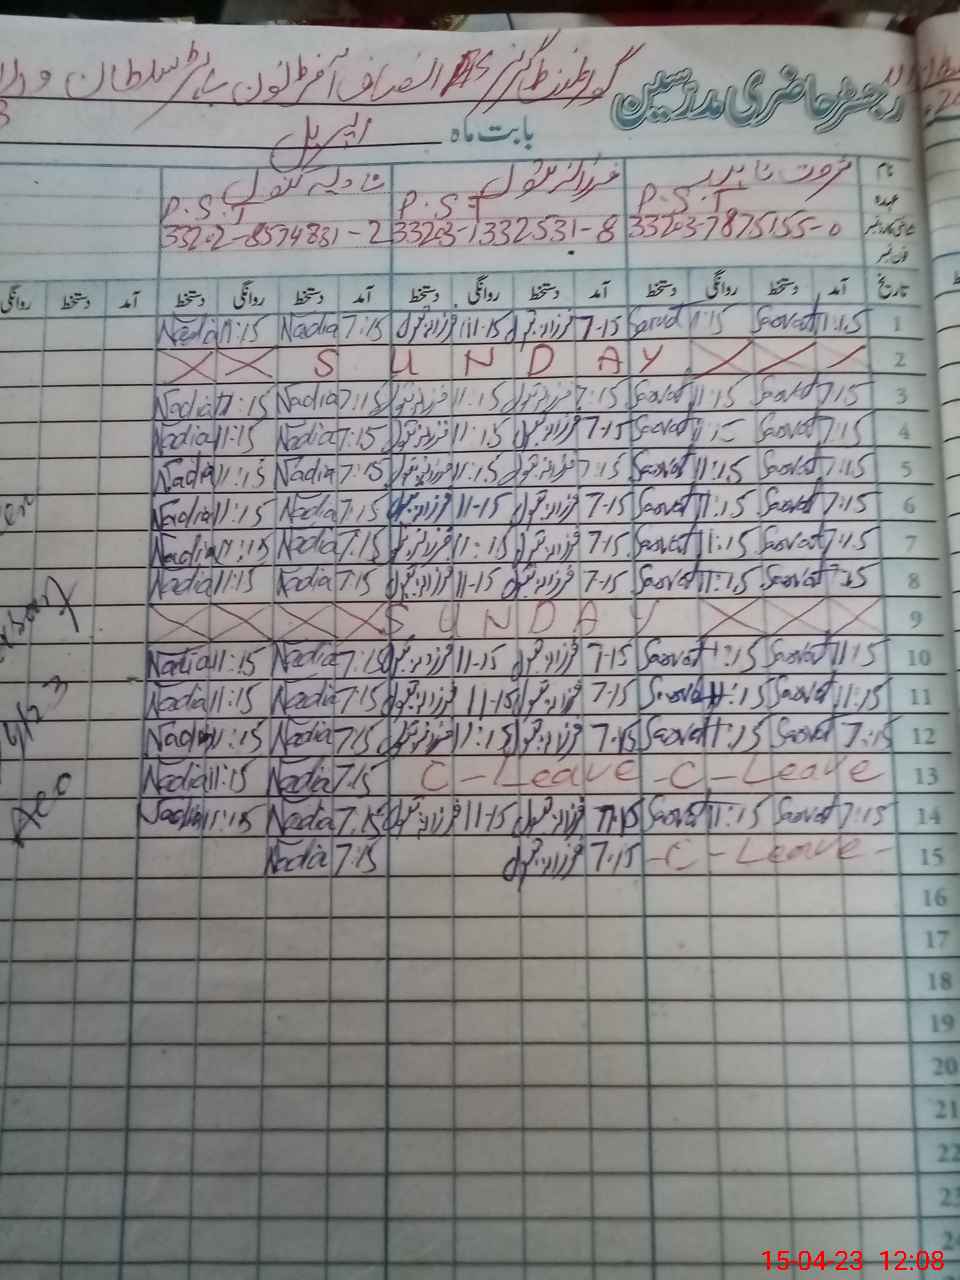 رجسٹر حاضری مدرسین گورنمنٹ گرلز انصاف آفٹر نون سلطان
بابت ماہ اپریل
نام ثروت ناہید فرزانہ بتول نادیہ بتول
عہدہ P.S.T P.S.T P.S.T
33203-7875155-0 33203-1332531-8 33202-8574831-2
فون نمبر
تاریخ آمد دستخط روانگی دستخط آمد دستخط روانگی دستخط آمد دستخط روانگی دستخط آمد دستخط روانگی
1 11:15 Sarvat 11:15 Sarvat 7-15 فرزانہ بتول 11:15 فرزانہ بتول 7:15 Nadia 11:15 Nadia
2 SUNDAY
3 7:15 Sarvat 11:15 Sarvat 7:15 فرزانہ بتول 11:15 فرزانہ بتول 7:15 Nadia 11:15 Nadia
4 7:15 Sarvat Sarvat 7-15 فرزانہ بتول 11:15 فرزانہ بتول 7:15 Nadia 11:15 Nadia
5 7:15 Sarvat 11:15 Sarvat 7:15 فرزانہ بتول 11:15 فرزانہ بتول 7:15 Nadia 11:15 Nadia
6 7:15 Sarvat 11:15 Sarvat 7-15 فرزانہ بتول 11-15 فرزانہ بتول 7:15 Nadia 11:15 Nadia
7 7:15 Sarvat 11:15 Sarvat 7-15 فرزانہ بتول 11:15 فرزانہ بتول 7:15 Nadia 11:15 Nadia
8 7:15 Sarvat 11:15 Sarvat 7-15 فرزانہ بتول 11-15 فرزانہ بتول 7:15 Nadia 11:15 Nadia
9 SUNDAY
10 11:15 Sarvat 11:15 Sarvat 7-15 فرزانہ بتول 11-15 فرزانہ بتول 7:15 Nadia 11:15 Nadia
11 11:15 Sarvat 11:15 Sarvat 7-15 فرزانہ بتول 11-15 فرزانہ بتول 7:15 Nadia 11:15 Nadia
12 7:15 Sarvat 11:15 Sarvat 7-15 فرزانہ بتول 11:15 فرزانہ بتول 7:15 Nadia 11:15 Nadia
13 C - Leave - C - Leave 7:15 Nadia 11:15 Nadia
14 7:15 Sarvat 11:15 Sarvat 7-15 فرزانہ بتول 11-15 فرزانہ بتول 7:15 Nadia 11:15 Nadia
15 - C - Leave - 7-15 فرزانہ بتول 7:15 Nadia
16
17
18
19
20
21
22
23
24
15-04-23 12:08